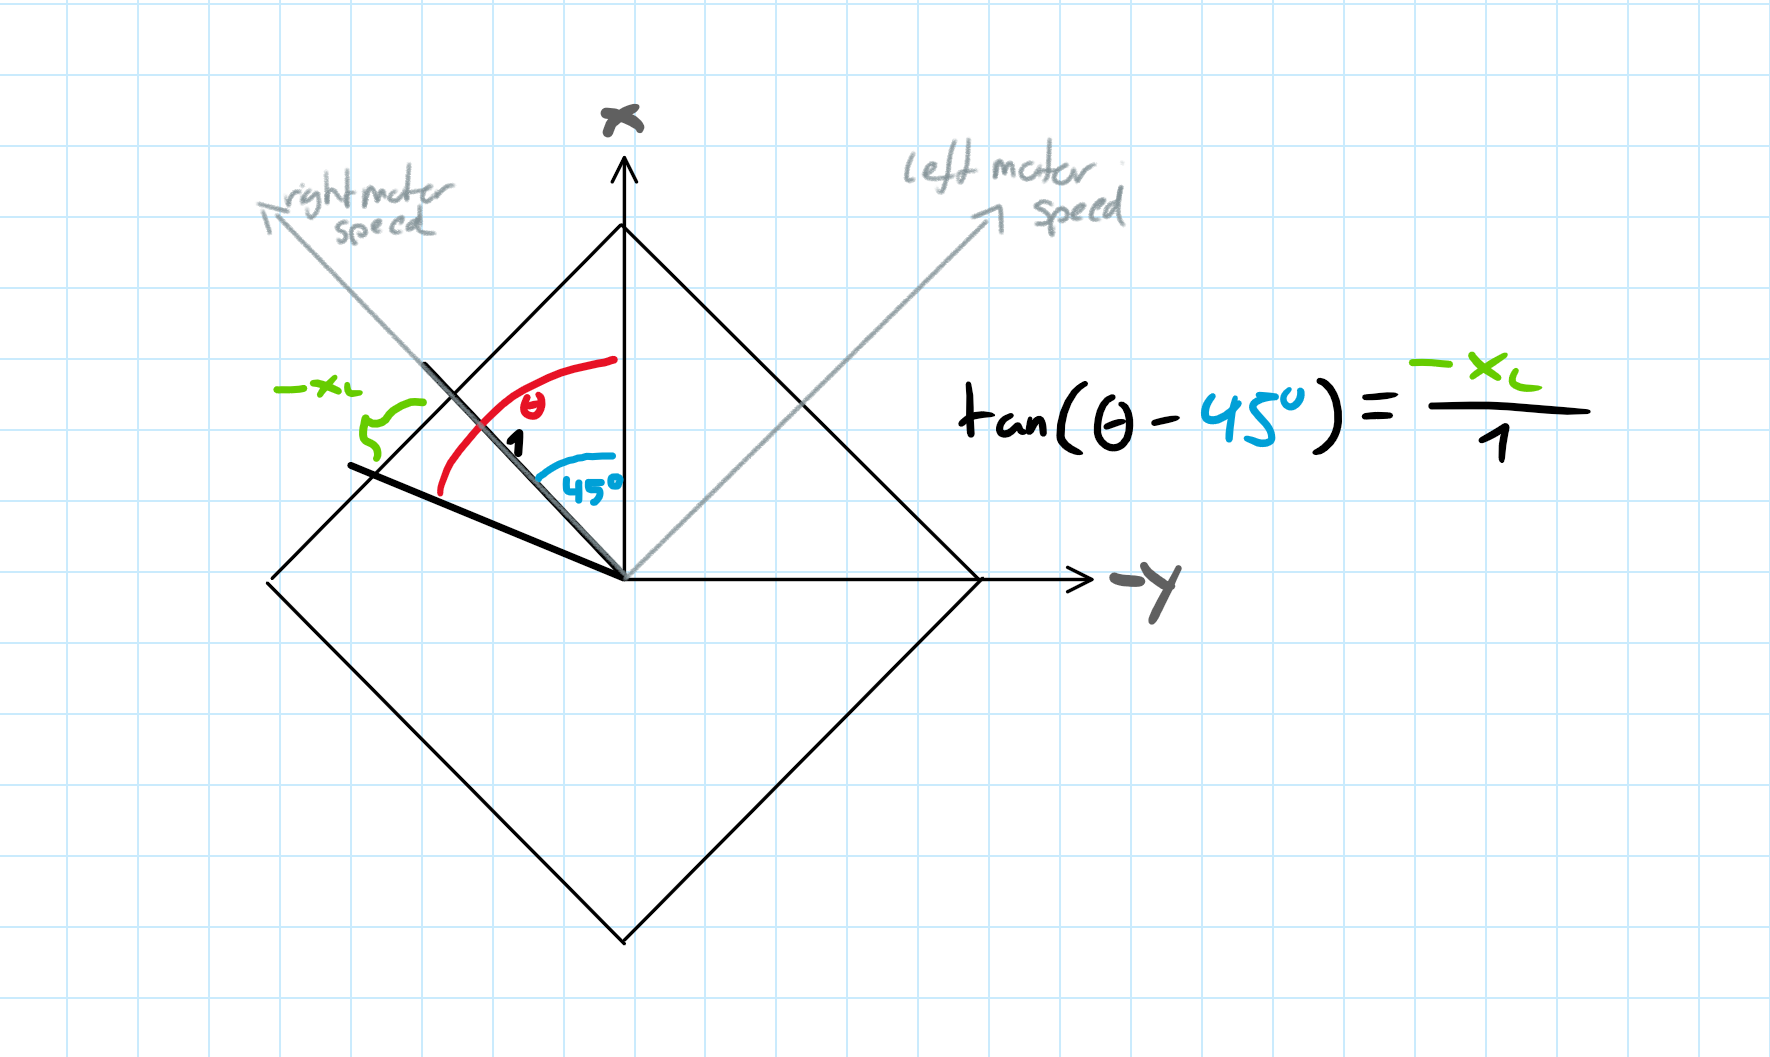 x
right motor
speed
left motor
speed
-x_L
θ
1
45°
tan(θ - 45°) = -x_L / 1
-y